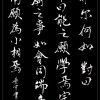 尔何如對曰
曰能之願學焉宗
之事如會同端章
甫願為小相焉